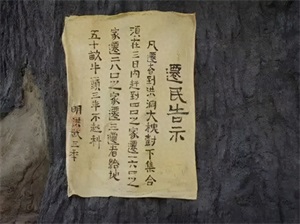 遷民告示
凡遷者到洪洞大槐樹下集合
須在三日內趕到四口之家遷一六口之
家遷二八口之家遷三遷者給地
五十畝牛一頭三年不起科
明洪武三年